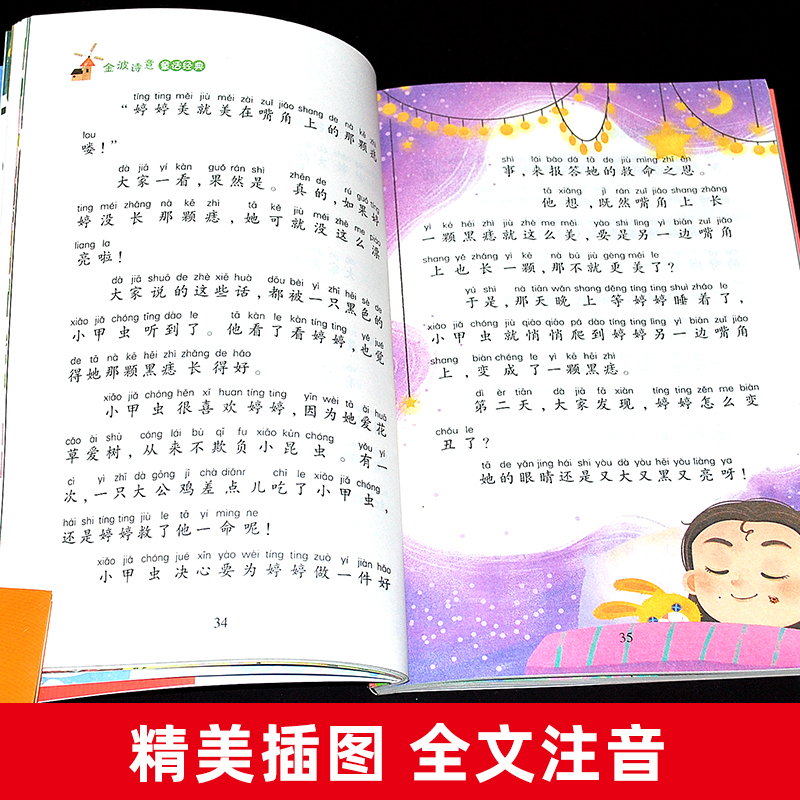 金波诗意 童话经典
tíng ting měi jiù měi zài zuǐ jiǎo shang de nà kē zhì
“婷婷美就美在嘴角上的那颗痣
lou
喽！”
dà jiā yí kàn guǒ rán shì zhēn de rú guǒ tíng
大家一看，果然是。真的，如果婷
ting méi zhǎng nà kē zhì tā kě jiù méi zhè me piào
婷没长那颗痣，她可就没这么漂
liang la
亮啦！
dà jiā shuō de zhè xiē huà dōu bèi yì zhī hēi sè de
大家说的这些话，都被一只黑色的
xiǎo jiǎ chóng tīng dào le tā kàn le kàn tíng ting yě jué
小甲虫听到了。他看了看婷婷，也觉
de tā nà kē hēi zhì zhǎng de hǎo
得她那颗黑痣长得好。
xiǎo jiǎ chóng hěn xǐ huan tíng ting yīn wèi tā ài huā
小甲虫很喜欢婷婷，因为她爱花
cǎo ài shù cóng lái bù qī fu xiǎo kūn chóng yǒu yí
草爱树，从来不欺负小昆虫。有一
cì yì zhī dà gōng jī chà diǎnr chī le xiǎo jiǎ chóng
次，一只大公鸡差点儿吃了小甲虫，
hái shi tíng ting jiù le tā yí mìng ne
还是婷婷救了他一命呢！
xiǎo jiǎ chóng jué xīn yào wèi tíng ting zuò yí jiàn hǎo
小甲虫决心要为婷婷做一件好
34
shì lái bào dá tā de jiù mìng zhī ēn
事，来报答她的救命之恩。
tā xiǎng jì rán zuǐ jiǎo shang zhǎng
他想，既然嘴角上长
yì kē hēi zhì jiù zhè me měi yào shi lìng yì biān zuǐ jiǎo
一颗黑痣就这么美，要是另一边嘴角
shang yě zhǎng yì kē nà bú jiù gèng měi le
上也长一颗，那不就更美了？
yú shì nà tiān wǎn shang děng tíng ting shuì zháo le
于是，那天晚上等婷婷睡着了，
xiǎo jiǎ chóng jiù qiāo qiāo pá dào tíng ting lìng yì biān zuǐ jiǎo
小甲虫就悄悄爬到婷婷另一边嘴角
shang biàn chéng le yì kē hēi zhì
上，变成了一颗黑痣。
dì èr tiān dà jiā fā xiàn tíng ting zěn me biàn
第二天，大家发现，婷婷怎么变
chǒu le
丑了？
tā de yǎn jing hái shi yòu dà yòu hēi yòu liàng ya
她的眼睛还是又大又黑又亮呀！
35
精美插图 全文注音